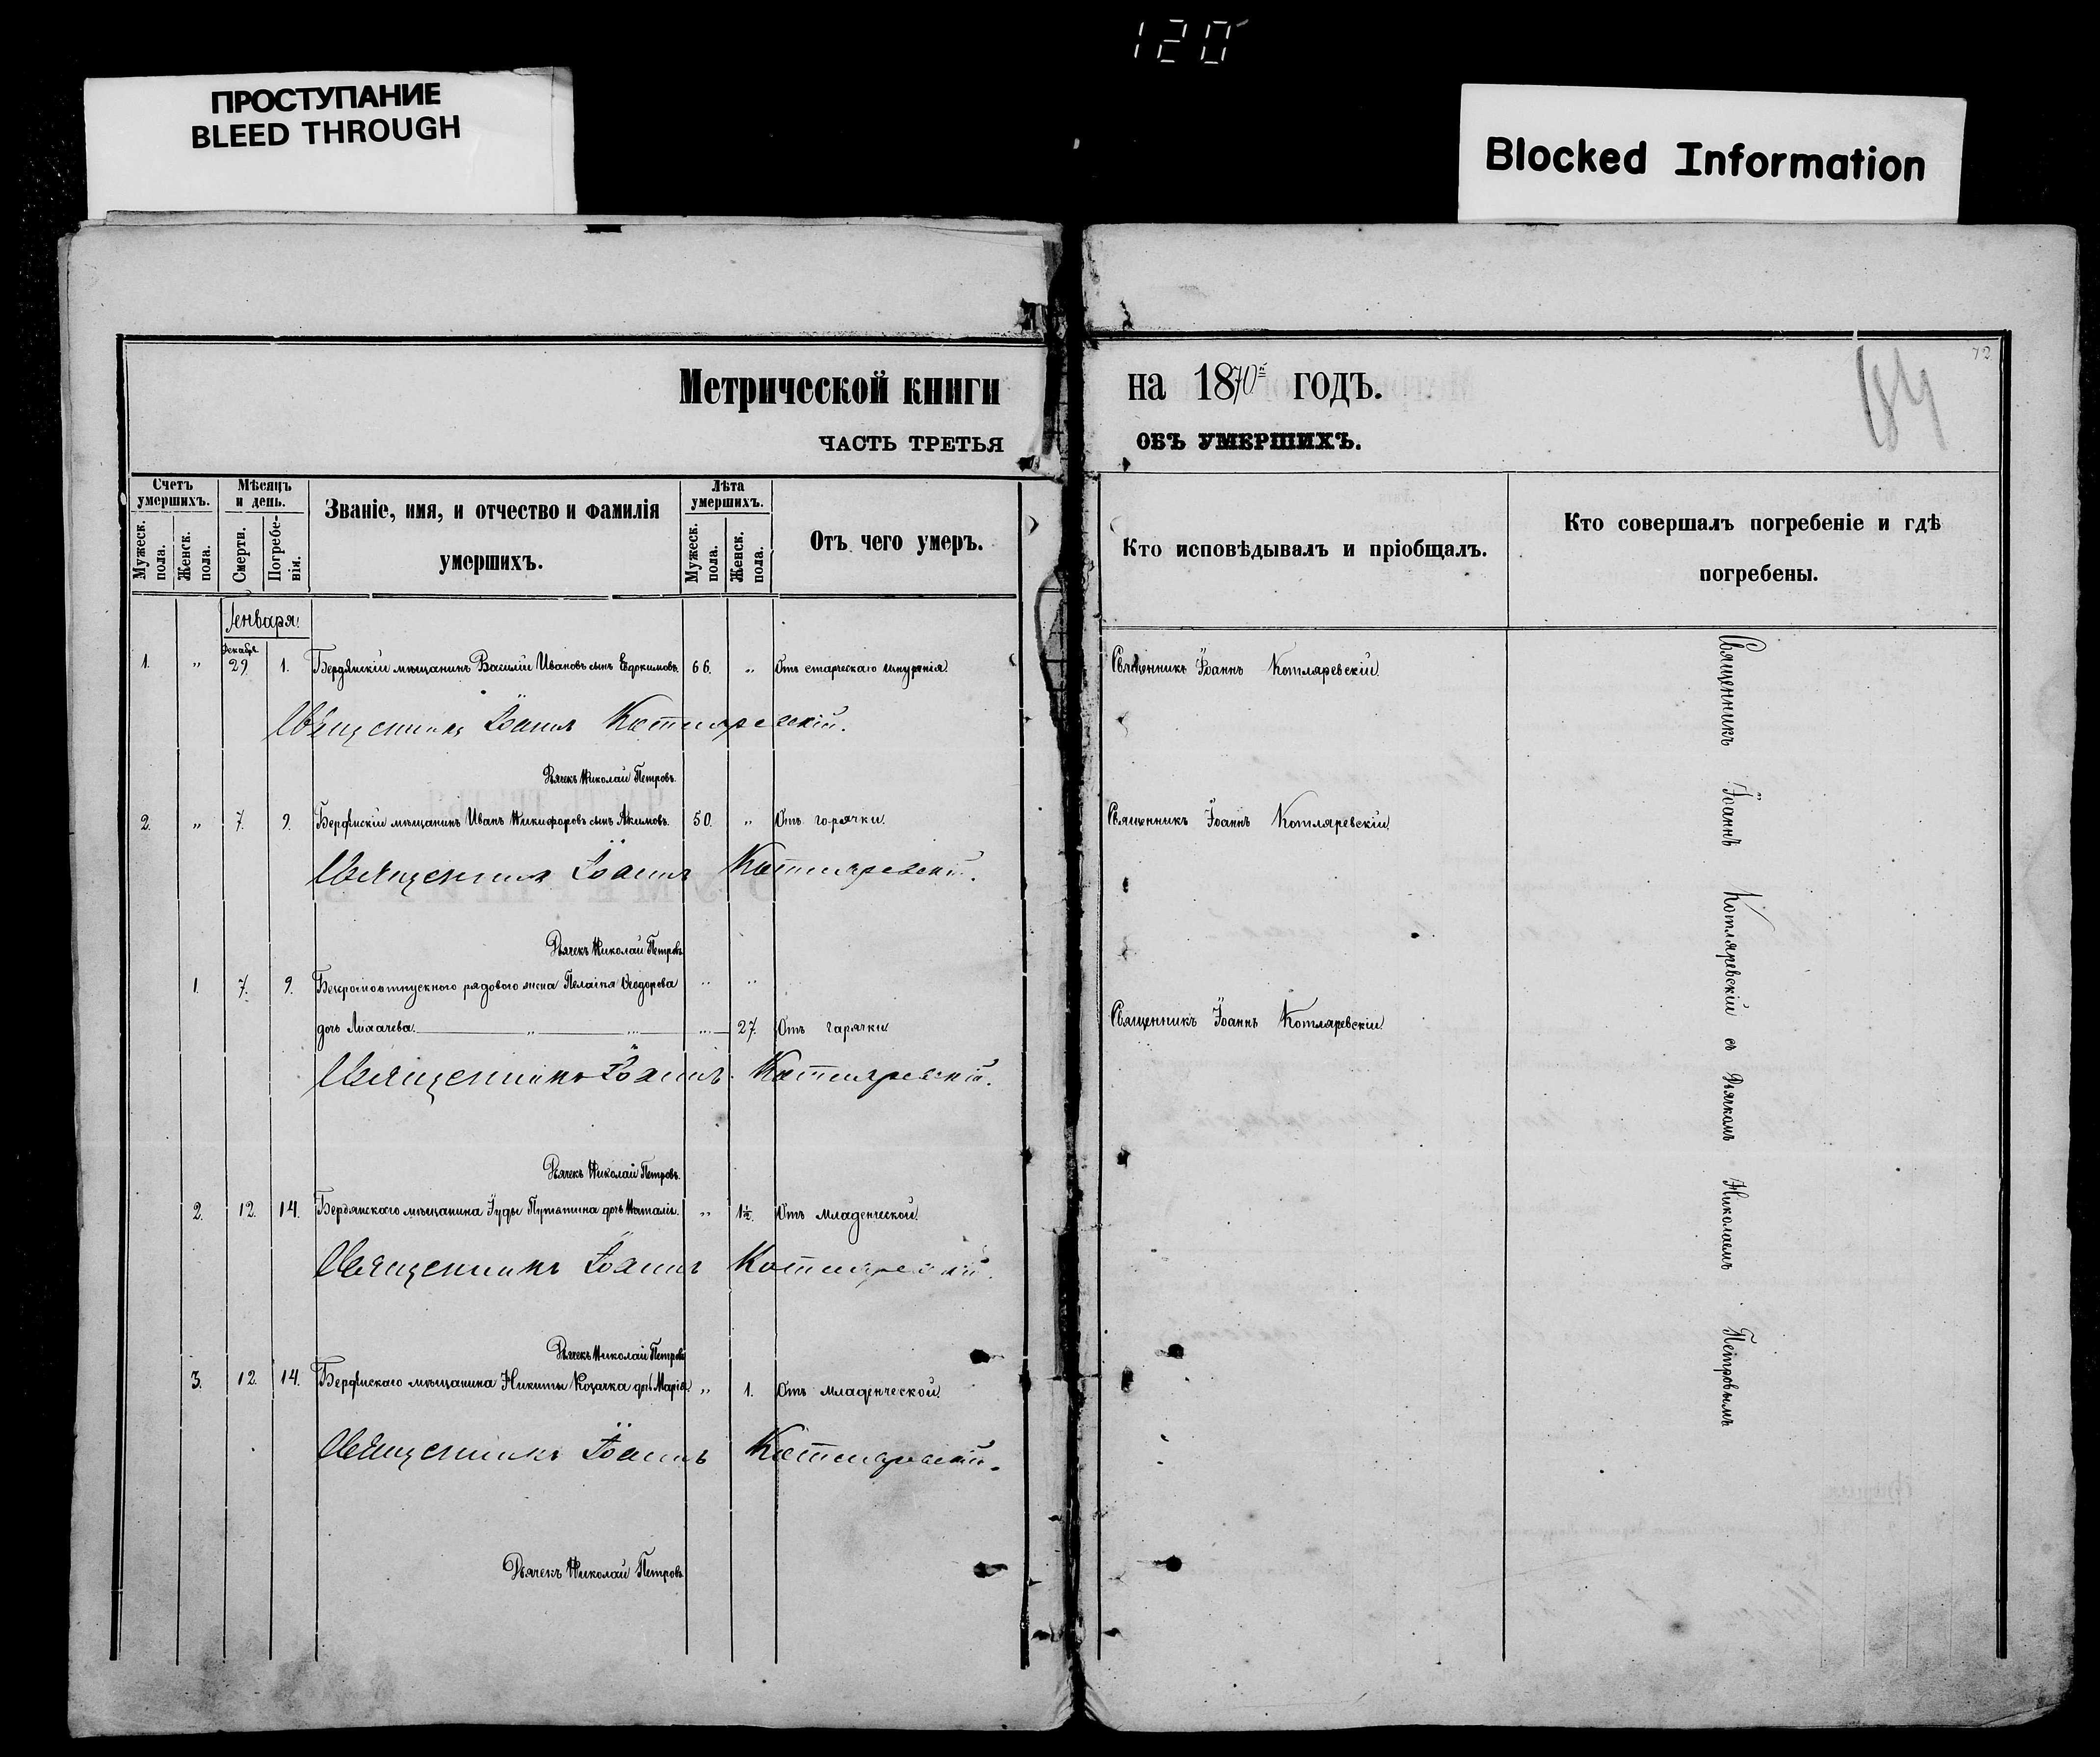 120
ПРОСТУПАНИЕ
BLEED THROUGH
Blocked Information
Метрической книги на 1870й годъ.
ЧАСТЬ ТРЕТЬЯ ОБЪ УМЕРШИХЪ.
72
184
Счетъ умершихъ.
Мужеск. пола.
Женск. пола.
Мѣсяцъ и день.
Смерти.
Погребенія.
Званіе, имя, и отчество и фамилія умершихъ.
Лѣта умершихъ.
Мужеск. пола.
Женск. пола.
Отъ чего умеръ.
Кто исповѣдывалъ и пріобщалъ.
Кто совершалъ погребеніе и гдѣ погребены.
Генваря.
Декабря
1. „ 29 1. Бердянскій мѣщанинъ Василій Ивановъ сынъ Евдокимовъ. 66. „ Отъ старческаго Священникъ Іоаннъ Котляревскій.
Священникъ Іоаннъ Котляревскій.
Дьячекъ Николай Петровъ.
2. „ 7. 9. Бердянскій мѣщанинъ Иванъ Никифоровъ сынъ Акимовъ. 50. „ Отъ горячки. Священникъ Іоаннъ Котляревскій.
Священникъ Іоаннъ Котляревскій.
Дьячекъ Николай Петровъ.
1. 7. 9. Безсрочноотпускного рядового жена Пелагіка Ѳеодорова „ „
дочь Лихачева. „ „ „ 27. Отъ гарячки Священникъ Іоаннъ Котляревскій.
Священникъ Іоаннъ Котляревскій.
Дьячекъ Николай Петровъ.
2. 12. 14. Бердянскаго мѣщанина Іуды Путятина дочь Наталія. „ 1½. Отъ младенческой.
Священникъ Іоаннъ Котляревскій.
Дьячекъ Николай Петровъ
3. 12. 14. Бердянскаго мѣщанина Никиты Козачка дочь Марія. „ 1. Отъ младенческой.
Священникъ Іоаннъ Котляревскій.
Дьячекъ Николай Петровъ
Священникъ Іоаннъ Котляревскій съ Дьячкомъ Николаемъ Петровымъ